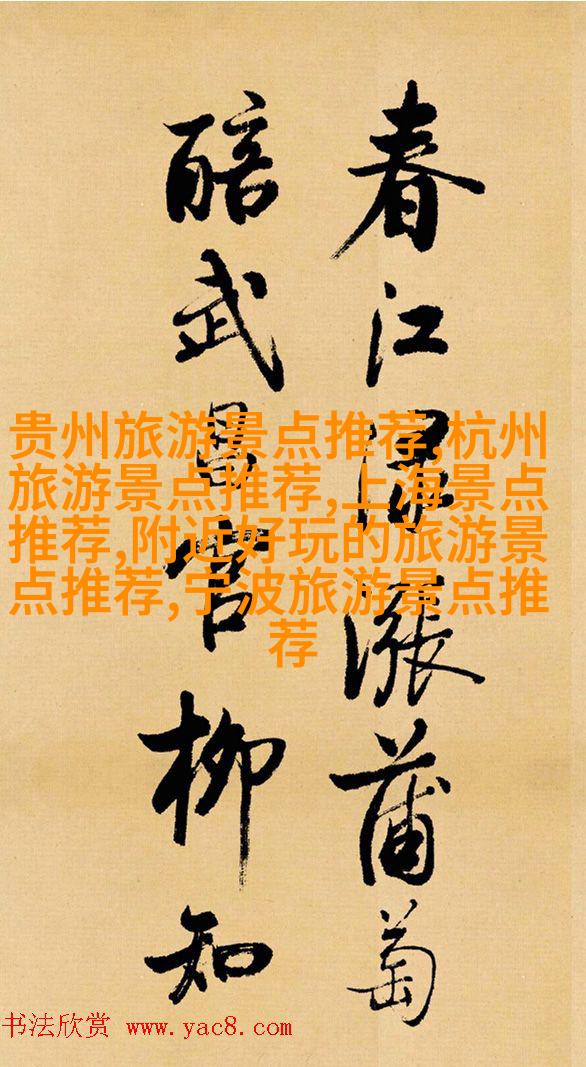 春江渌涨蒲萄
醅武昌官柳知
贵州旅游景点推荐,杭州
旅游景点推荐,上海景点
推荐,附近好玩的旅游景
点推荐,宁波旅游景点推
荐
书法欣赏 www.yac8.com